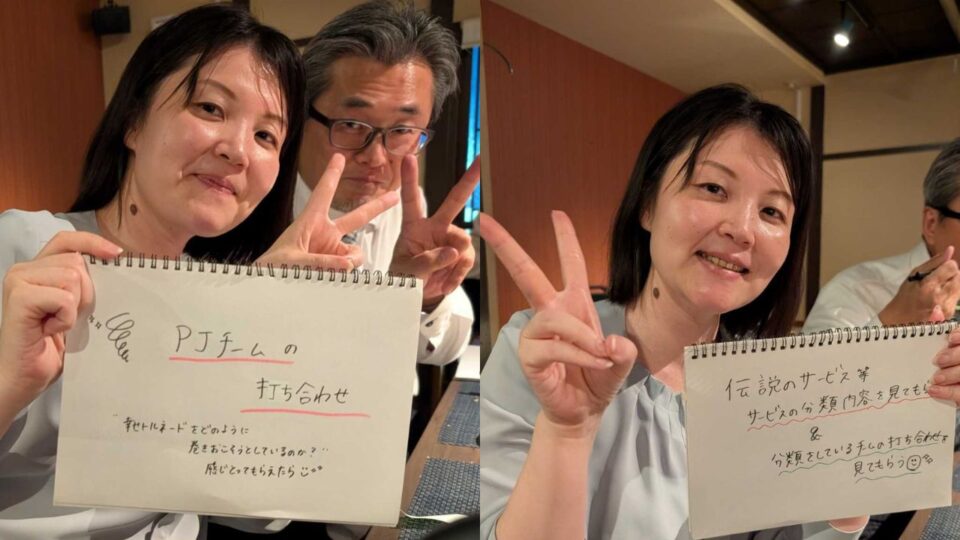 PJチームの
打ち合わせ
"幸せトルネードをどのように
巻きおこそうとしているのか?"
感じとってもらえたら
伝説のサービス等
サービスの分類内容を見てもら
&
分類をしているチームの打ち合わせを
見てもらう